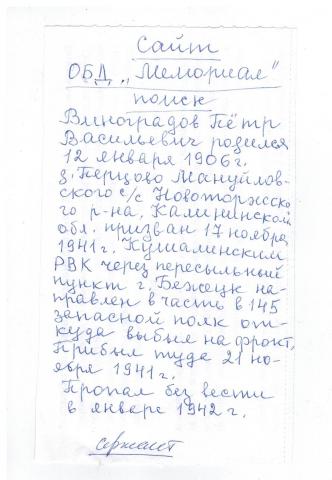 Сайт
ОБД „Мемориал"
поиск
Виноградов Пётр
Васильевич родился
12 января 1906 г.
д. Перцово Мануйлов-
ского с/с Новоторжско
го р-на, Калининской
обл. призван 17 ноября
1941 г. Кушалинским
РВК через пересыльный
пункт г. Бежецк на-
правлен в часть в 145
запасной полк от-
куда выбыл на фронт.
Прибыл туда 21 но-
ября 1941 г.
Пропал без вести
в январе 1942 г.
сержант